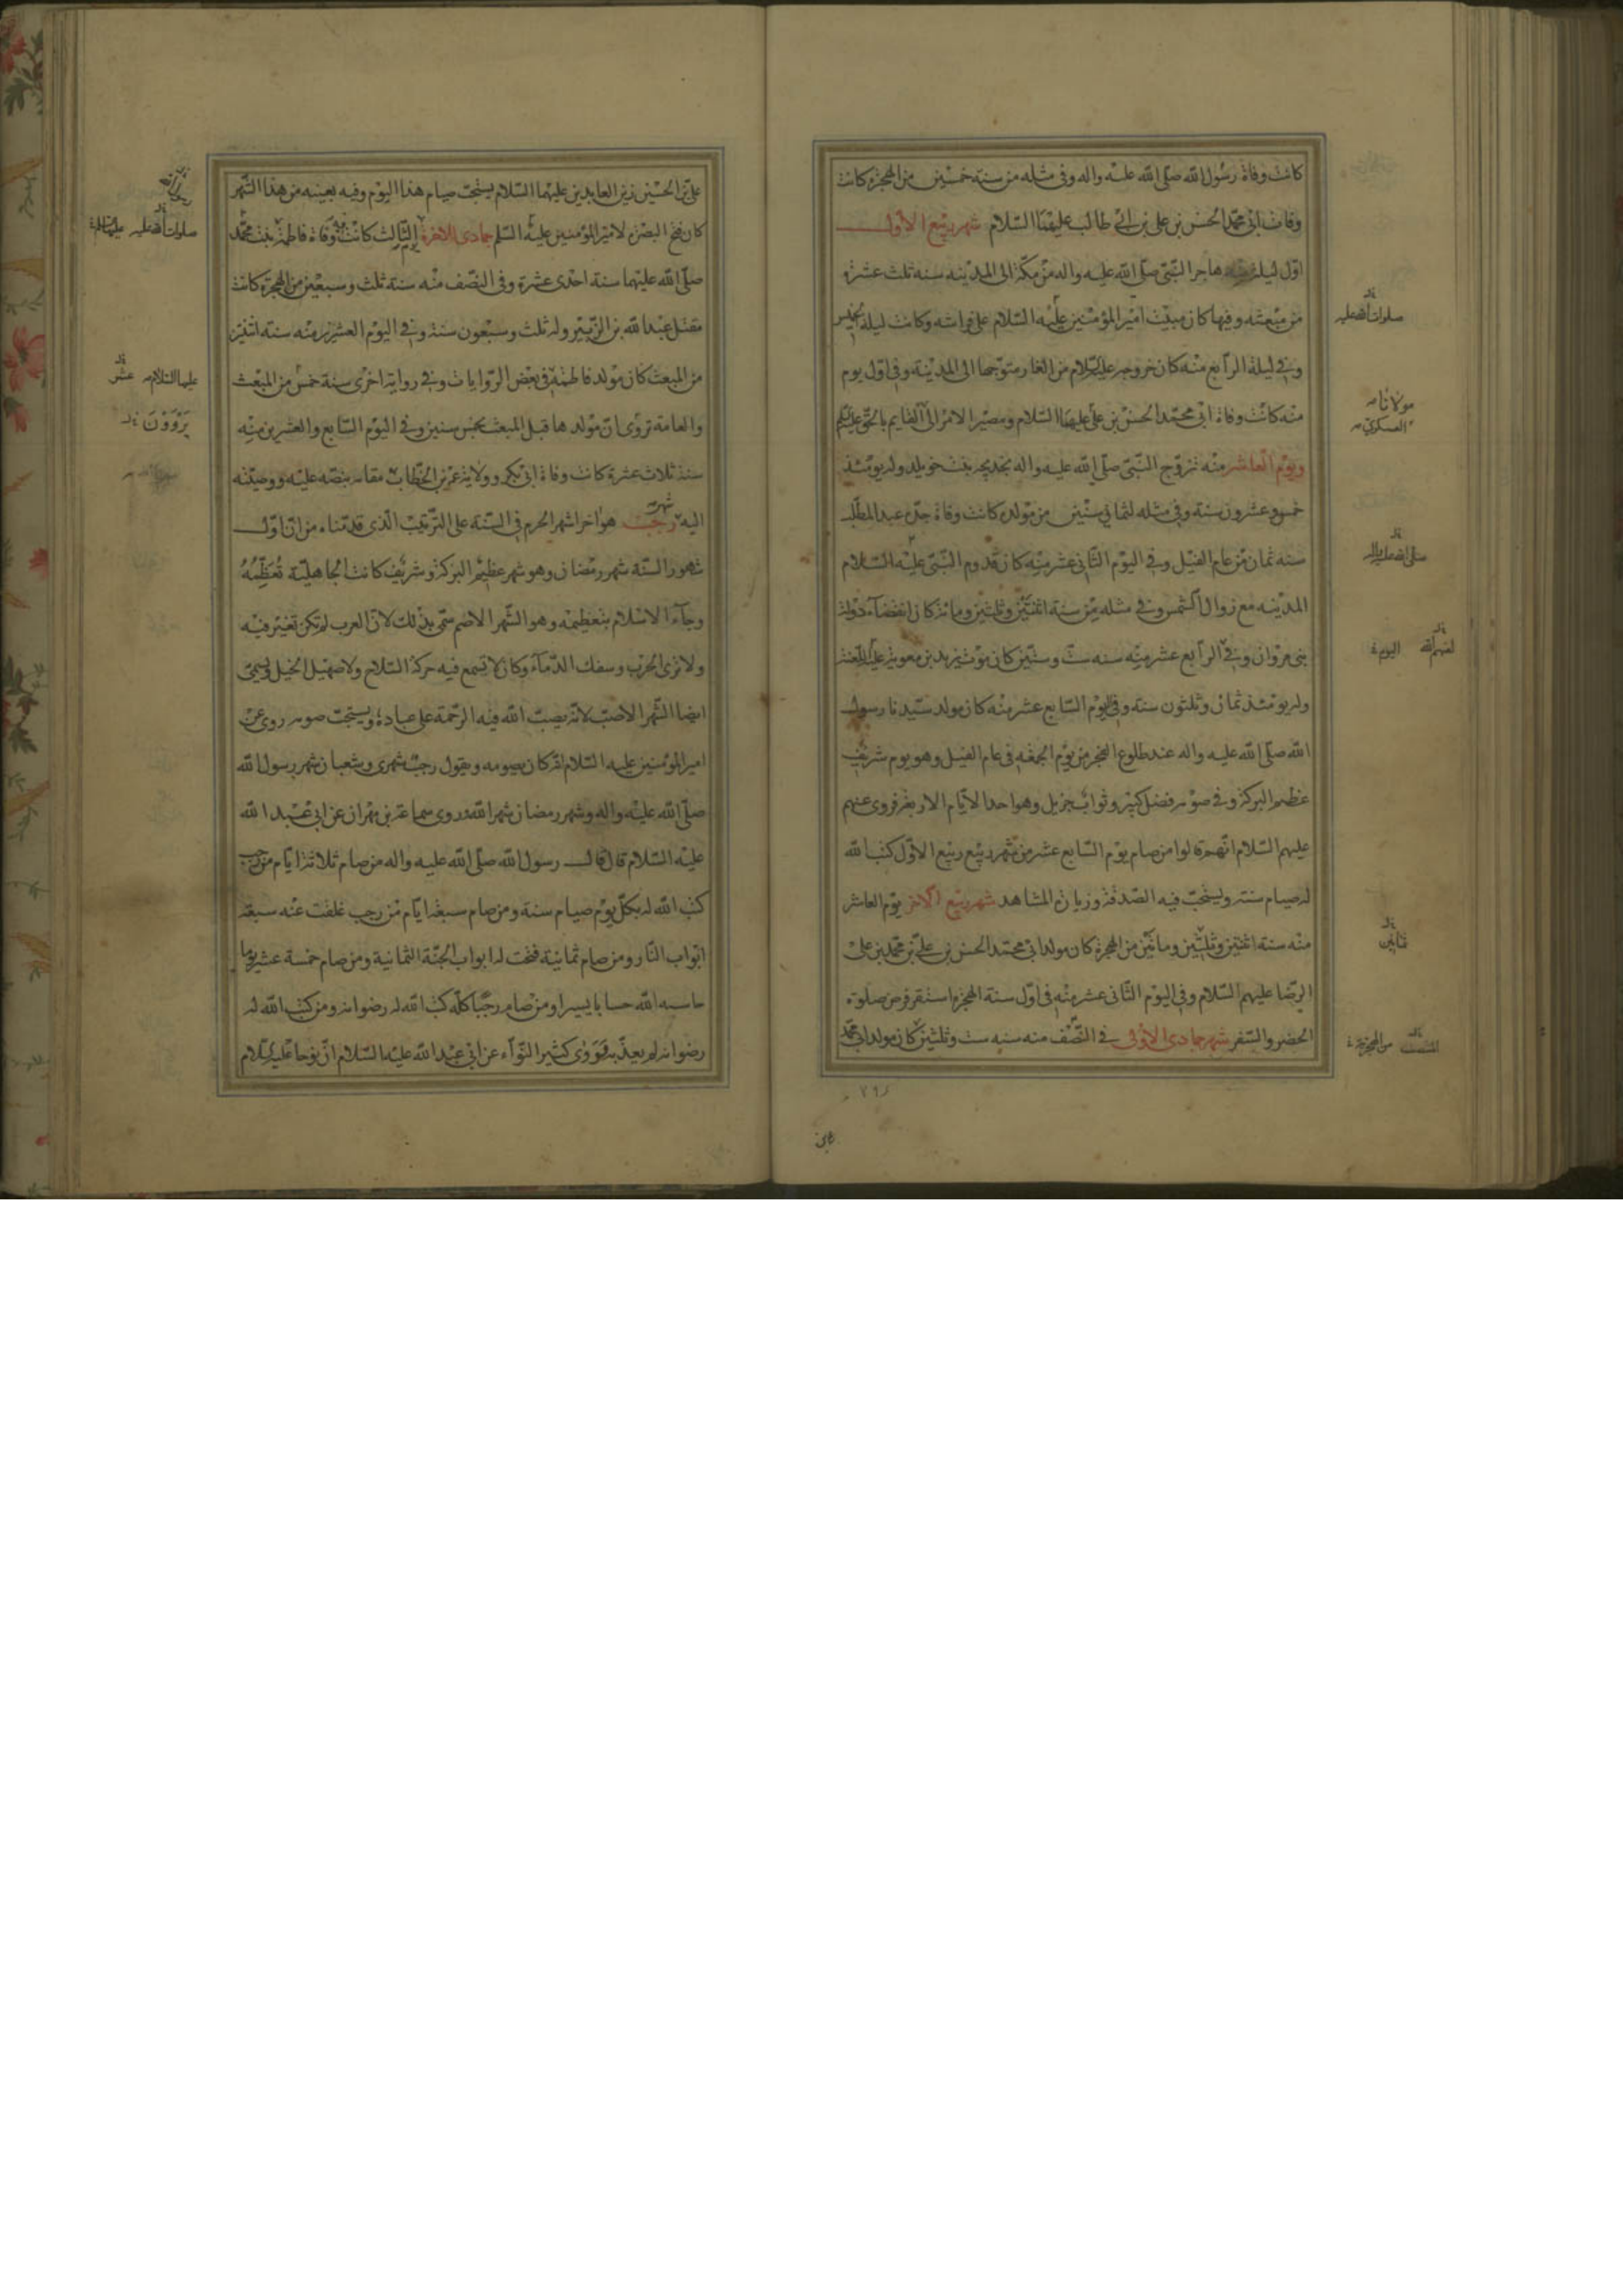 كانت وفاة رسول الله صلى الله عليه واله وفى مثله من سنة خمسين من الهجرة كانت
وفات ابى محمد الحسن بن على بن ابى طالب عليهما السلام شهر ربيع الاول
اول ليلة منه هاجر النبى صلى الله عليه واله من مكة الى المدينه سنه ثلث عشرة
من مبعثه وفيها كان مبيت امير المؤمنين عليه السلام على فراشه وكانت ليلة الخميس
وفى ليلة الرابع منه كان خروجه عليه السلام من الغار متوجها الى المدينة وفى اول يوم
منه كانت وفاة ابى محمد الحسن بن على عليهما السلام ومصير الامر الى القايم بالحق عليه السلم
ويوم العاشر منه تزوج النبى صلى الله عليه واله بخديجه بنت خويلد وله يومئذ
خمس وعشرون سنة وفى مثله لثمانى سنين من مولده كانت وفاة جده عبد المطلب
سنه ثمان من عام الفيل وفى اليوم الثانى عشر منه كان قدوم النبى عليه السلام
المدينه مع زوال الشمس وفى مثله من سنة اثنتين وثلثين ومائة كان انقضاء دولة
بنى مروان وفى الرابع عشر منه سنه ست وستين كان موت يزيد بن معوية عليه اللعنة
وله يومئذ ثمان وثلثون سنة وفى اليوم السابع عشر منه كان مولد سيدنا رسول
الله صلى الله عليه واله عند طلوع الفجر من يوم الجمعه فى عام الفيل وهو يوم شريف
عظيم البركة وفى صومه فضل كثير وثواب جزيل وهو احد الايام الاربعة فروى عنهم
عليهم السلام انهم قالوا من صام يوم السابع عشر من شهر ربيع ربيع الاول كتب الله
له صيام سنة ويستحب فيه الصدقة وزيارة المشاهد شهر ربيع الاخر يوم العاشر
منه سنة اثنتين وثلثين ومائتين من الهجرة كان مولد ابى محمد الحسن بن على بن محمد بن على
الرضا عليهم السلام وفى اليوم الثانى عشر منه فى اول سنة الهجرة استقر فرض صلوة
الحضر والسفر شهر جمادى الاولى فى النصف منه سنه ست وثلثين كان مولد ابى محمد
صلوات الله عليه
مولانا
العسكرى
صلى الله عليه واله
لعنهم الله اليوم
من الهجرة
على
على بن الحسين زين العابدين عليهما السلام يستحب صيام هذا اليوم وفيه بعينه من هذا الشهر
كان فتح البصرة لامير المؤمنين عليه السلم جمادى الاخرة اليوم الثالث منه كانت وفاة فاطمة بنت محمد
صلى الله عليهما سنة احدى عشرة وفى النصف منه سنة ثلث وسبعين من الهجرة كانت
مقتل عبد الله بن الزبير وله ثلث وسبعون سنة وفى اليوم العشرين منه سنة اثنتين
من المبعث كان مولد فاطمة فى بعض الروايات وفى رواية اخرى سنة خمس من المبعث
والعامة تروى ان مولدها قبل المبعث بخمس سنين وفى اليوم السابع والعشرين منه
سنة ثلاث عشرة كانت وفاة ابى بكر وولاية عمر بن الخطاب مقامه بنصه عليه ووصيته
اليه شهر رجب هو اخر اشهر الحرم فى السنة على الترتيب الذى قدمناه من ان اول
شهور السنة شهر رمضان وهو شهر عظيم البركة وشريف كانت الجاهلية تعظمه
وجاء الاسلام بتعظيمه وهو الشهر الاصم سمى بذلك لان العرب لم تكن تغير فيه
ولا ترى الحرب وسفك الدماء وكان لا تسمع فيه حركة السلاح ولا صهيل الخيل ويسمى
ايضا الشهر الاصب لانه يصب الله فيه الرحمة على عباده ويستحب صومه روى عن
امير المؤمنين عليه السلام انه كان يصومه ويقول رجب شهرى وشعبان شهر رسول الله
صلى الله عليه واله وشهر رمضان شهر الله وروى سماعة بن مهران عن ابى عبد الله
عليه السلام قال قال رسول الله صلى الله عليه واله من صام ثلاثة ايام من رجب
كتب الله له بكل يوم صيام سنة ومن صام سبعة ايام من رجب غلقت عنه سبعة
ابواب النار ومن صام ثمانية فتحت له ابواب الجنة الثمانية ومن صام خمسة عشر يوما
حاسبه الله حسابا يسيرا ومن صام رجبا كله كتب الله له رضوانه ومن كتب الله له
رضوانه لم يعذبه وروى كثير النواء عن ابى عبد الله عليه السلام ان نوحا عليه السلام
صلوات الله عليه
عليها السلام عشر
يروون